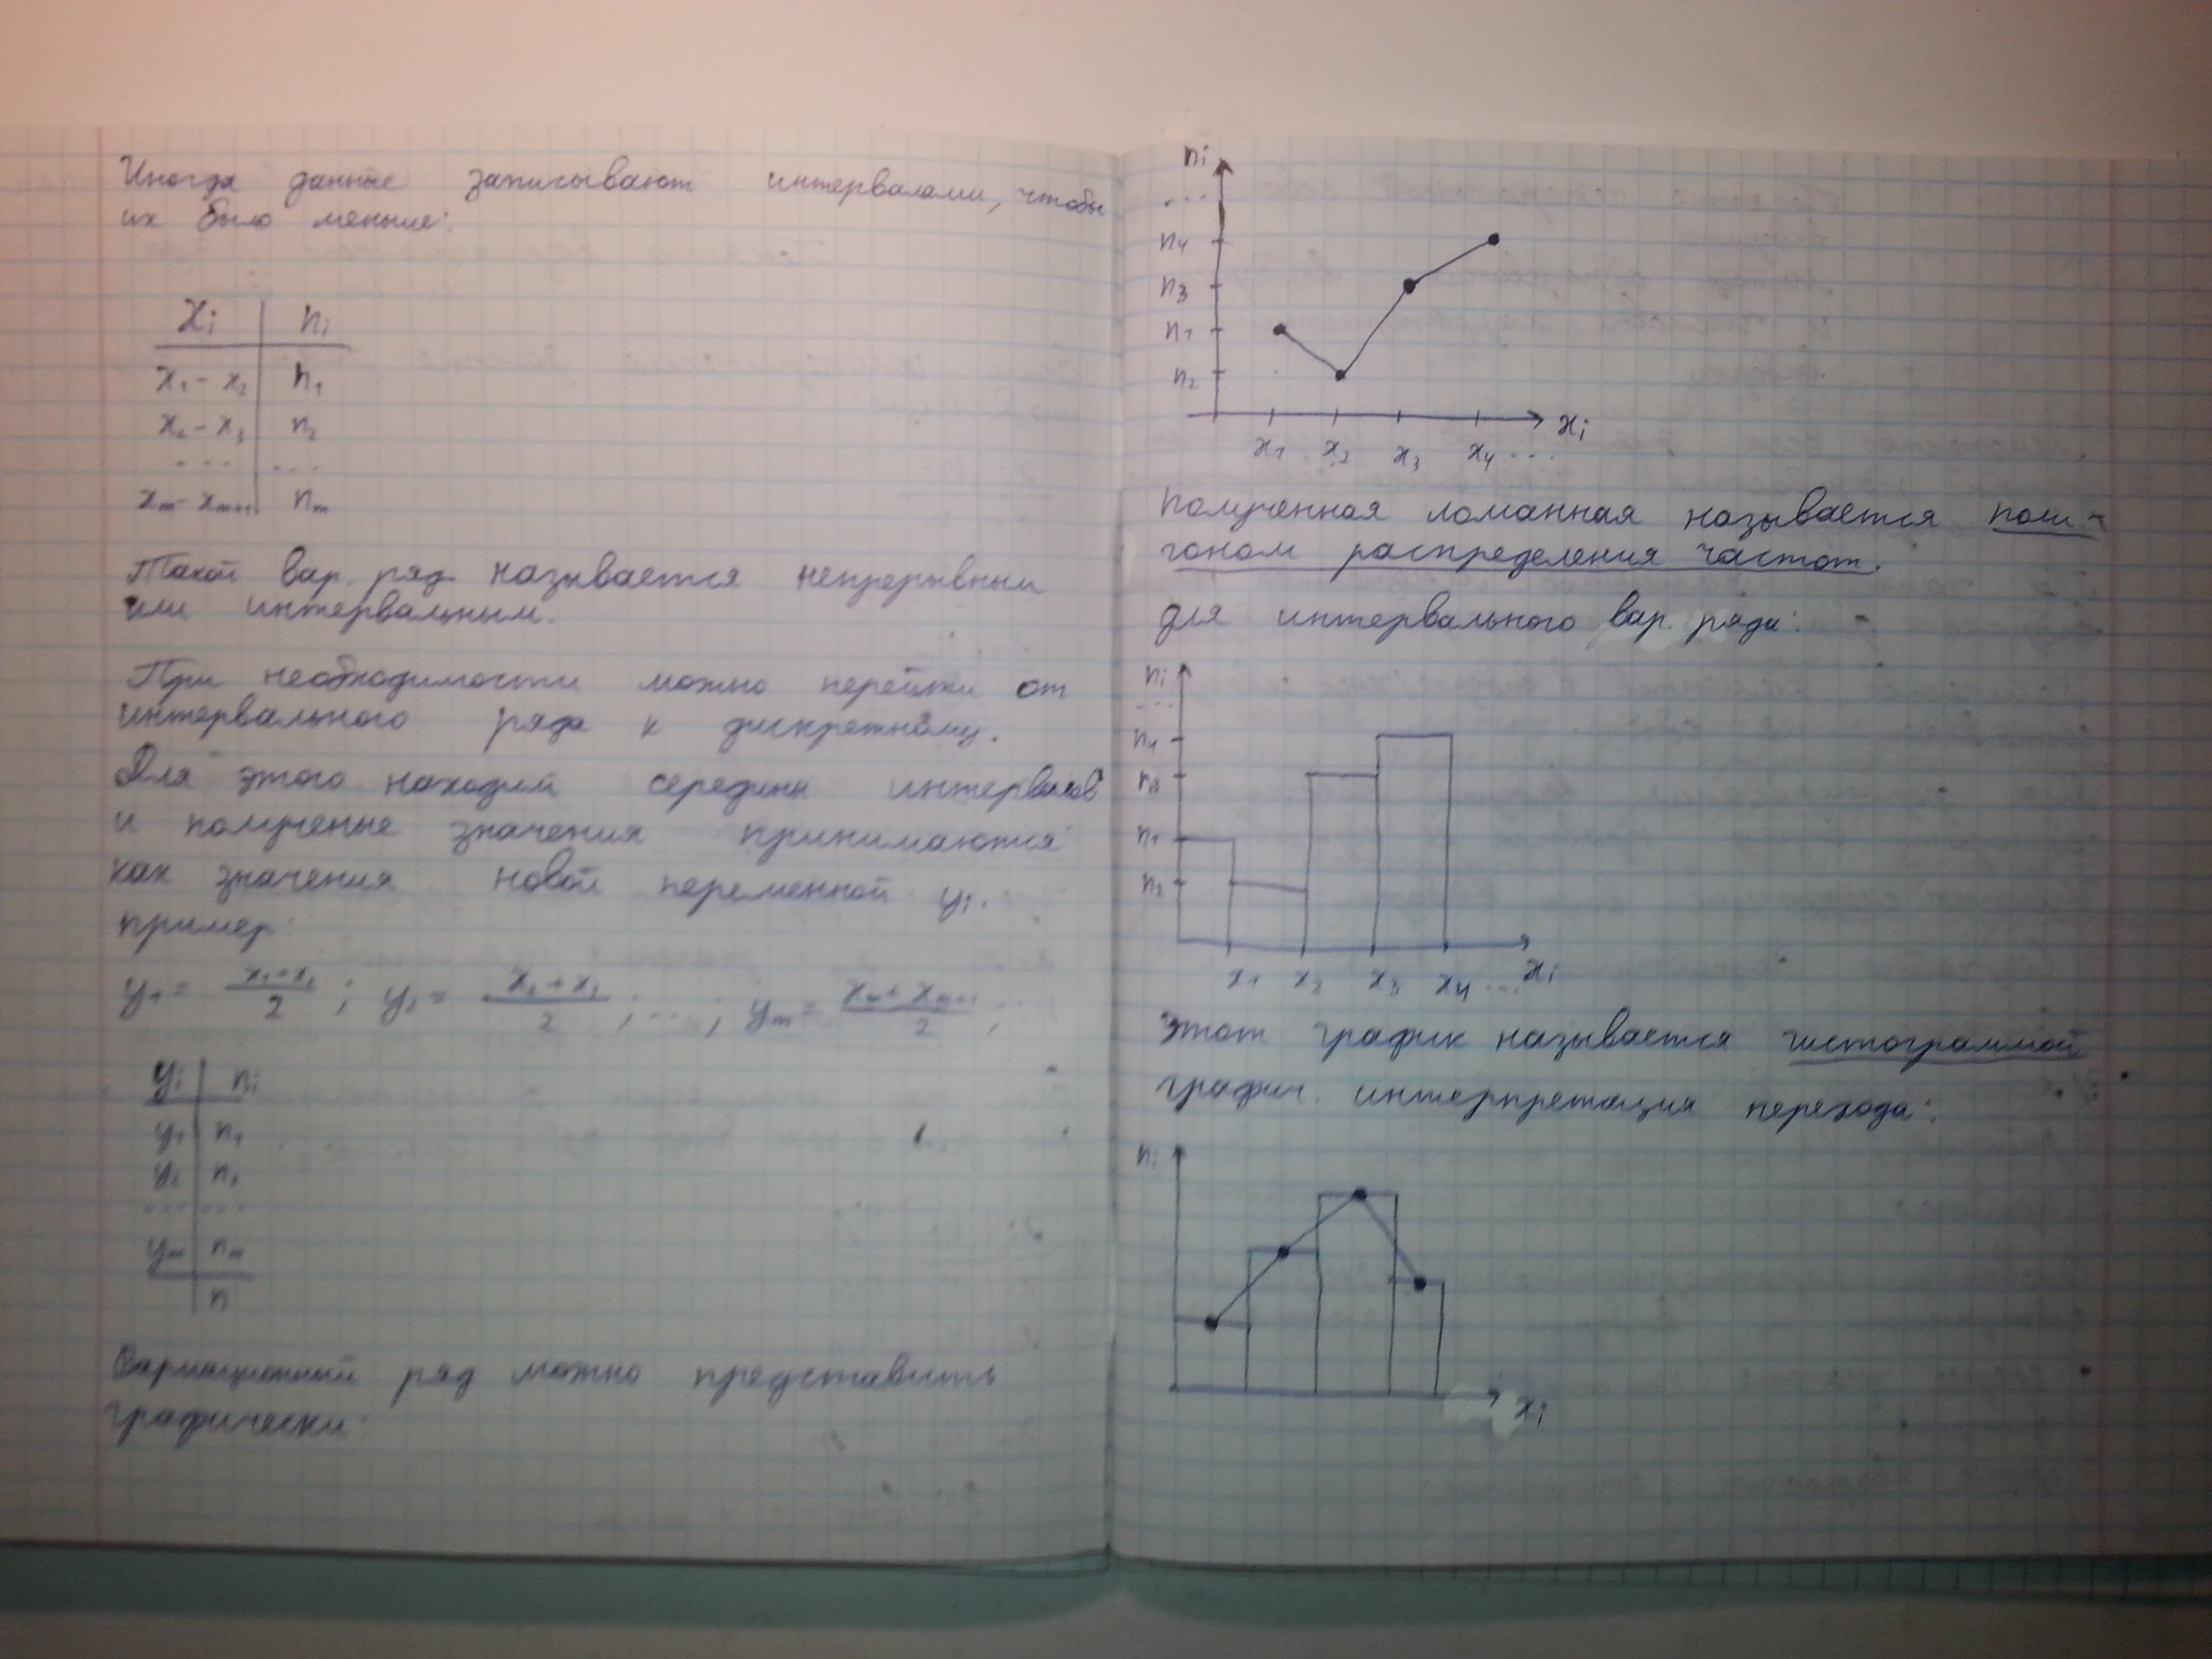 Иногда данные записывают интервалами, чтобы
их было меньше:
xi | ni
x1 - x2 | n1
x2 - x3 | n2
... | ...
xm - xm+1 | nm
Такой вар. ряд называется непрерывным
или интервальным.
При необходимости можно перейти от
интервального ряда к дискретному.
Для этого находим середины интервалов
и полученые значения принимаются
как значения новой переменной yi.
пример:
y1 = (x1+x2)/2 ; y2 = (x2+x3)/2 ; ... ; ym = (xm+xm+1)/2 ;
yi | ni
y1 | n1
y2 | n2
... | ...
ym | nm
n
Вариационный ряд можно представить
графически:
ni
...
n4
n3
n1
n2
x1 x2 x3 x4 ... xi
полученная ломанная называется поли-
гоном распределения частот.
для интервального вар. ряда:
ni
...
n4
n3
n1
n2
x1 x2 x3 x4 ... xi
Этот график называется гистограммой
графич. интерпретация перехода:
ni
xi